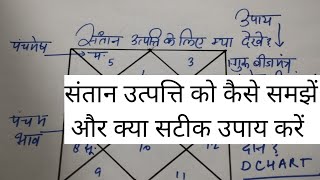 संतान उत्पत्ति के लिए क्या देखें
उपाय
पंचमेश
गुरु बीज मंत्र
5
3
संतान उत्पत्ति को कैसे समझें
और क्या सटीक उपाय करें
पंचम
भाव
दान
D CHART
9
11